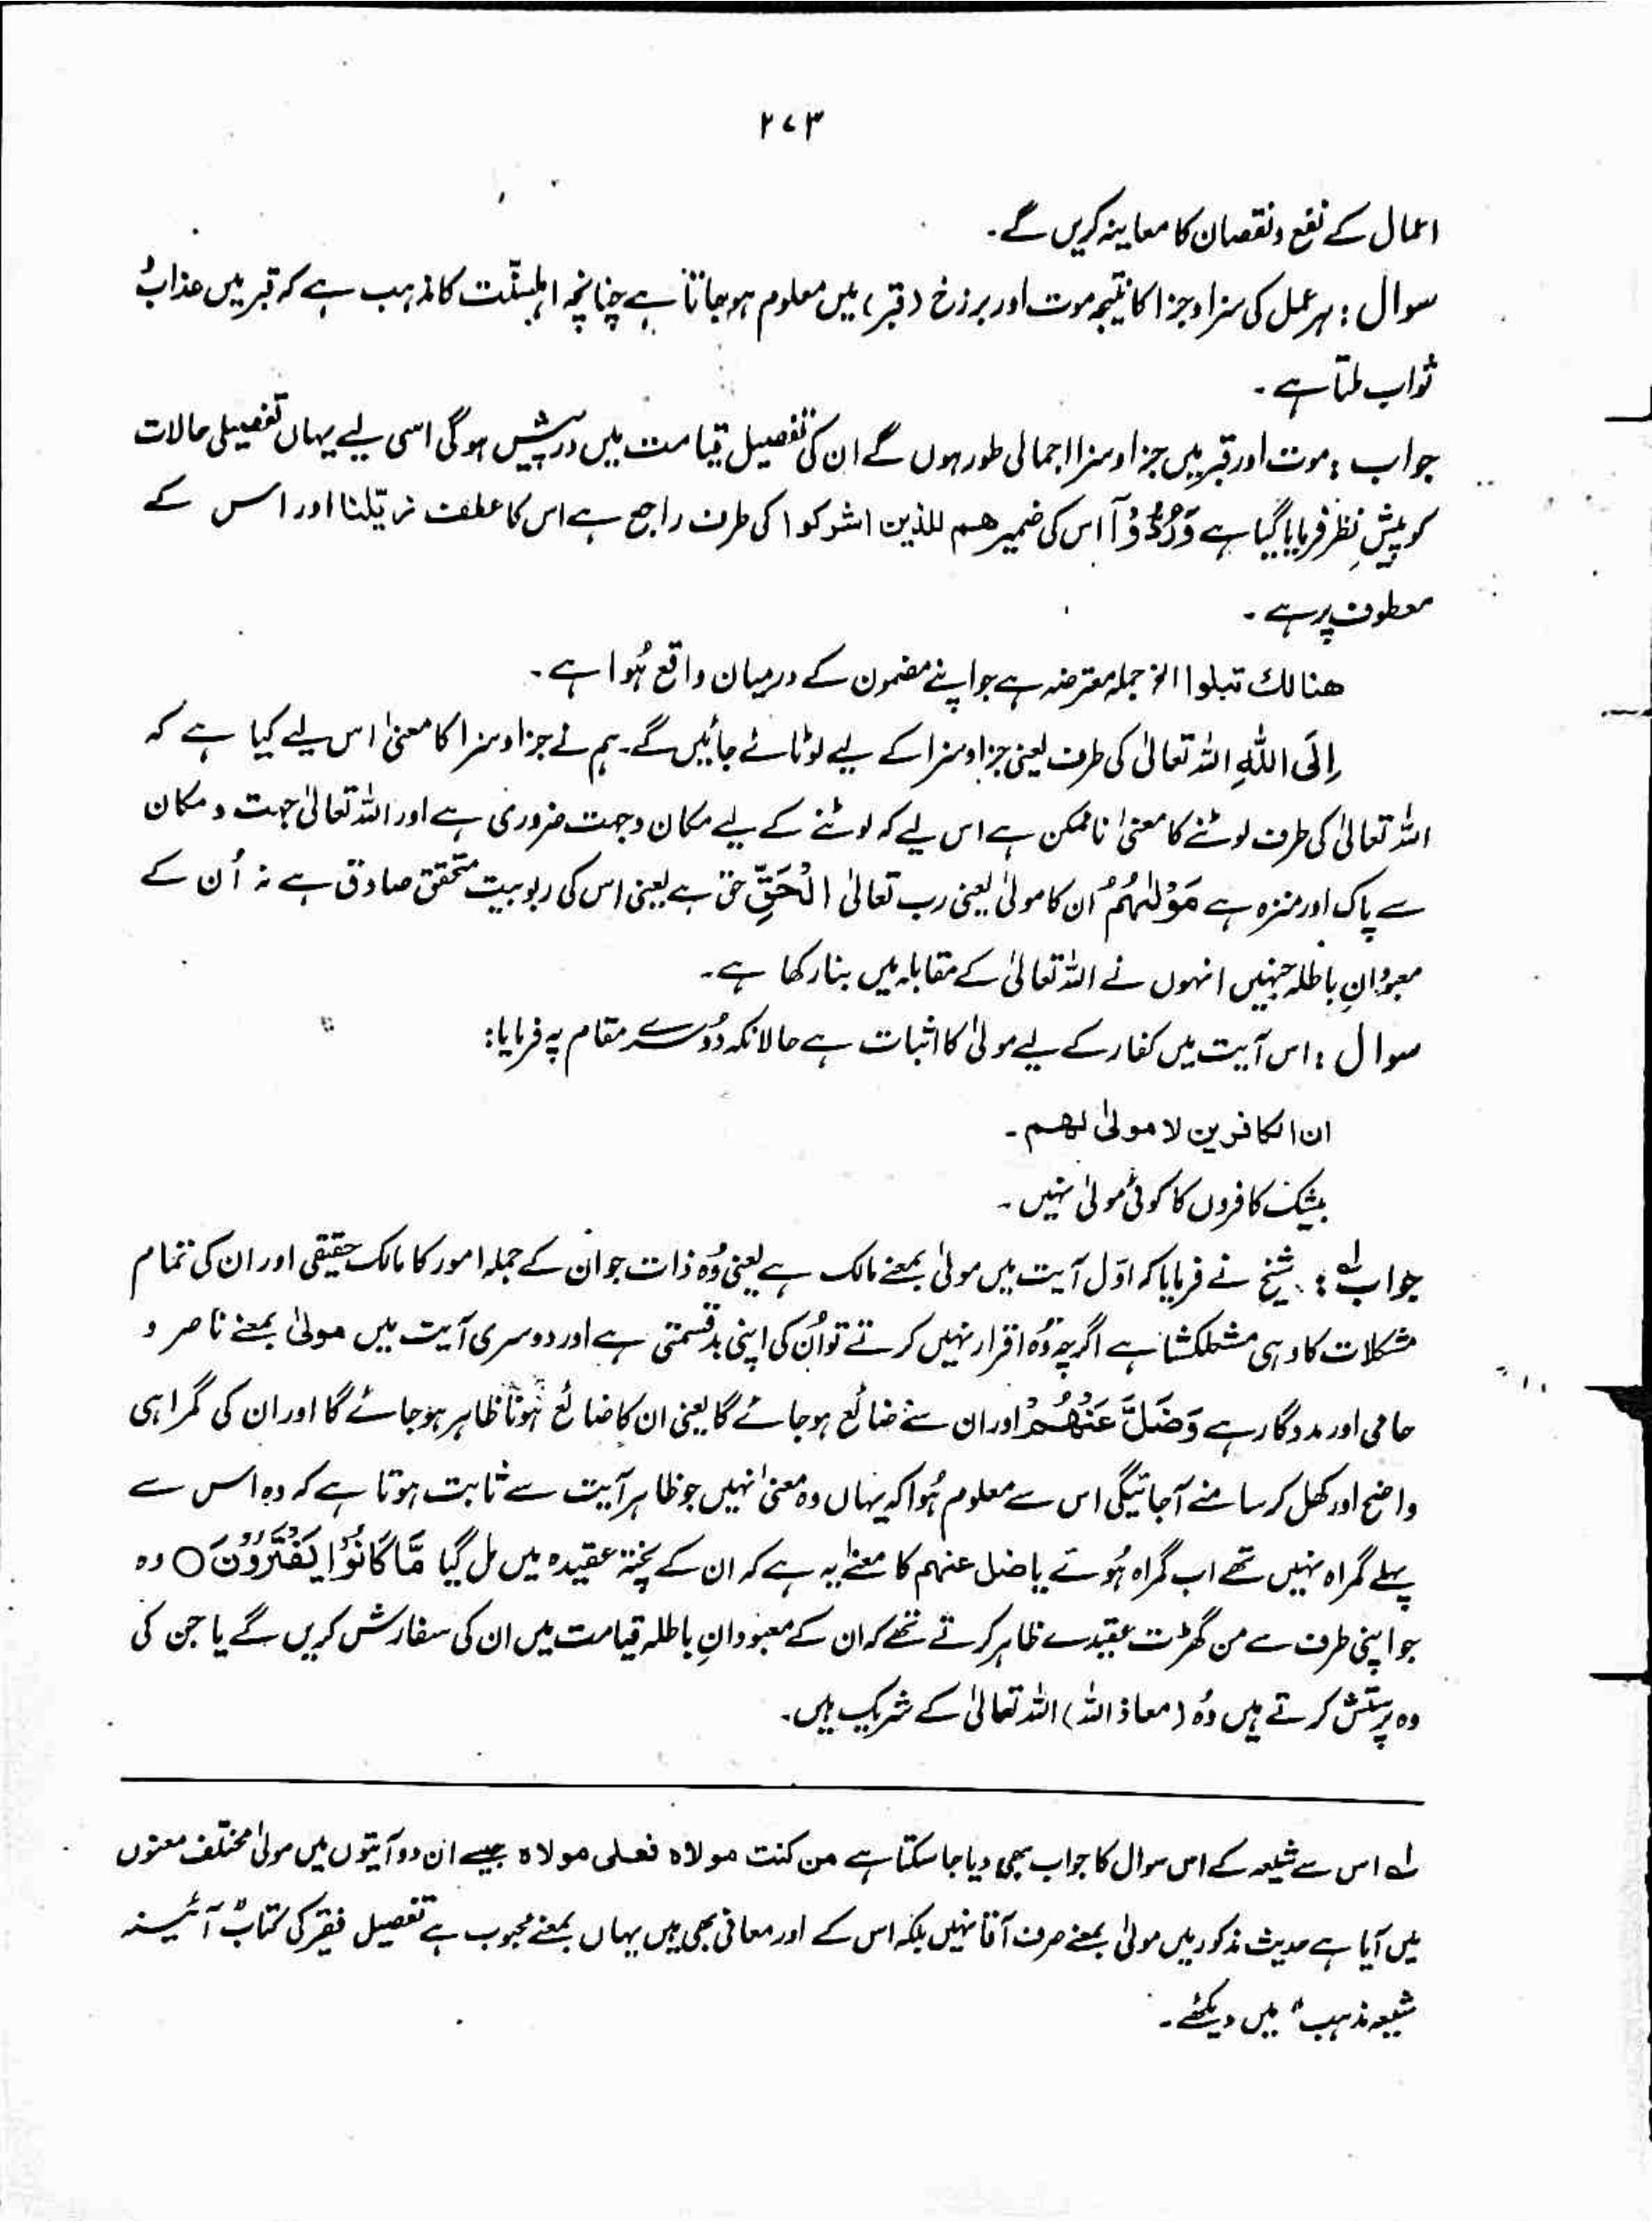 ۲۷۳
اعمال کے نفع ونقصان کا معاینہ کریں گے۔
سوال : ہر عمل کی سزا وجزا کا نتیجہ موت اور برزخ (قبر) میں معلوم ہو جاتا ہے چنانچہ اہلسنّت کا مذہب ہے کہ قبر میں عذاب و
ثواب ملتا ہے ۔
جواب : موت اور قبر میں جزا وسزا اجمالی طور ہوں گے ان کی تفصیل قیامت میں درپیش ہوگی اسی لیے یہاں تفصیلی حالات
کو پیشِ نظر فرمایا گیا ہے وَرُدُّوْٓا اس کی ضمیر هم للذین اشرکوا کی طرف راجع ہے اس کا عطف زیّلنا اور اس کے
معطوف پر ہے ۔
هنالك تبلوا الخ جملہ معترضہ ہے جو اپنے مضمون کے درمیان واقع ہُوا ہے ۔
اِلَى اللّٰهِ اللہ تعالیٰ کی طرف یعنی جزا وسزا کے لیے لوٹائے جائیں گے۔ ہم نے جزا وسزا کا معنیٰ اس لیے کیا ہے کہ
اللہ تعالیٰ کی طرف لوٹنے کا معنیٰ ناممکن ہے اس لیے کہ لوٹنے کے لیے مکان وجہت ضروری ہے اور اللہ تعالیٰ جہت و مکان
سے پاک اور منزہ ہے مَوْلٰىهُمُ ان کا مولیٰ یعنی رب تعالیٰ الْحَقِّ حق ہے یعنی اس کی ربوبیت متحقق صادق ہے نہ اُن کے
معبودانِ باطلہ جنہیں انہوں نے اللہ تعالیٰ کے مقابلہ میں بنا رکھا ہے۔
سوال : اس آیت میں کفار کے لیے مولیٰ کا اثبات ہے حالانکہ دُوسرے مقام پہ فرمایا:
ان الکافرین لا مولیٰ لهم ۔
بیشک کافروں کا کوئی مولیٰ نہیں ۔
جواب لہ : شیخ نے فرمایا کہ اوّل آیت میں مولیٰ بمعنے مالک ہے یعنی وُہ ذات جو ان کے جملہ امور کا مالک حقیقی اور ان کی تمام
مشکلات کا وہی مشکلکشا ہے اگرچہ وُہ اقرار نہیں کرتے تو اُن کی اپنی بدقسمتی ہے اور دوسری آیت میں مولیٰ بمعنے ناصر و
حامی اور مددگار ہے وَضَلَّ عَنْهُمْ اور ان سے ضائع ہو جائے گا یعنی ان کا ضائع ہونا ظاہر ہو جائے گا اور ان کی گمراہی
واضح اور کھل کر سامنے آجائیگی اس سے معلوم ہُوا کہ یہاں وہ معنیٰ نہیں جو ظاہر آیت سے ثابت ہوتا ہے کہ وہ اس سے
پہلے گمراہ نہیں تھے اب گمراہ ہُوئے یا ضل عنہم کا معنےٰ یہ ہے کہ ان کے پختہ عقیدہ میں مل گیا مَّا كَانُوْا يَفْتَرُوْنَ ○ وہ
جو اپنی طرف سے من گھڑت عقیدے ظاہر کرتے تھے کہ ان کے معبودانِ باطلہ قیامت میں ان کی سفارش کریں گے یا جن کی
وہ پرستش کرتے ہیں وُہ (معاذ اللہ) اللہ تعالیٰ کے شریک ہیں۔
لہ اس سے شیعہ کے اس سوال کا جواب بھی دیا جا سکتا ہے من کنت مولاہ فعلی مولاہ جیسے ان دو آیتوں میں مولیٰ مختلف معنوں
میں آیا ہے حدیث مذکور میں مولیٰ بمعنے صرف آقا نہیں بلکہ اس کے اور معانی بھی ہیں یہاں بمعنے محبوب ہے تفصیل فقیر کی کتاب "آئینہ
شیعہ مذہب" میں دیکھئے ۔